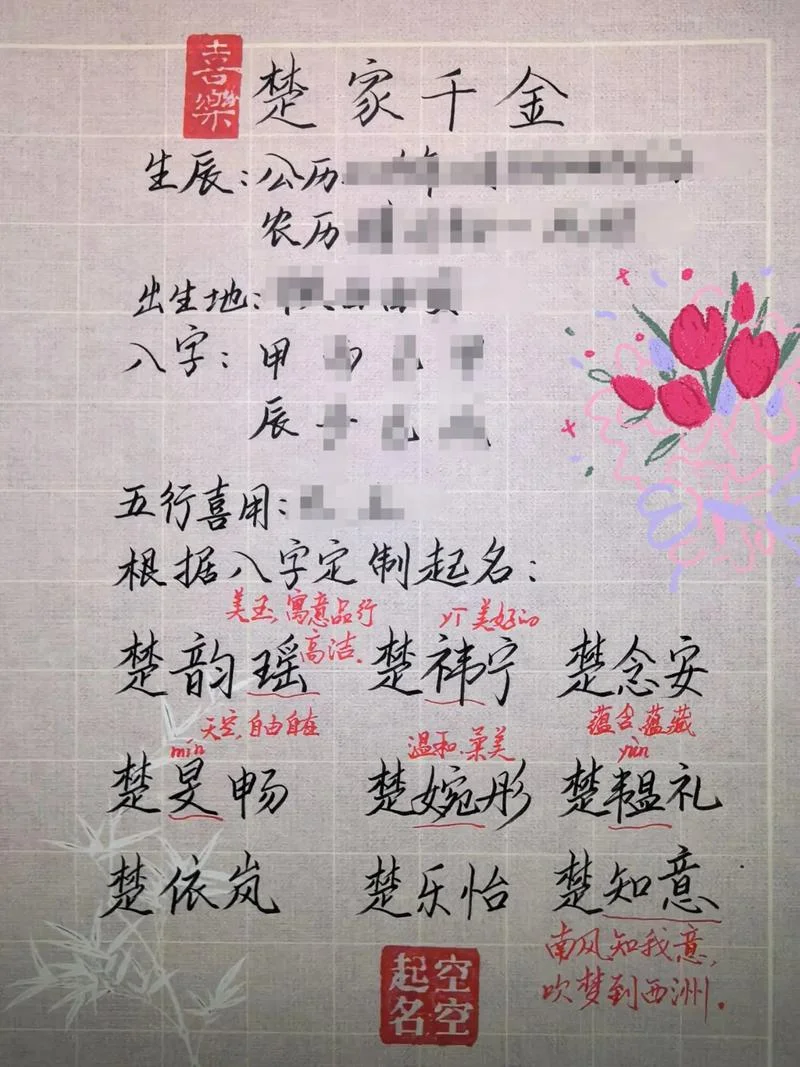 喜樂
楚家千金
生辰：公历
农历
出生地：
八字：甲
辰
五行喜用：
根据八字定制起名：
美玉，寓意品行高洁。
yī 美好的
楚韵瑶 楚祎宁 楚念安
天空，自由自在
温和、柔美
蕴含、蕴藏
mín
yùn
楚旻畅 楚婉彤 楚韫礼
楚依岚 楚乐怡 楚知意
南风知我意，
吹梦到西洲。
空空
起名